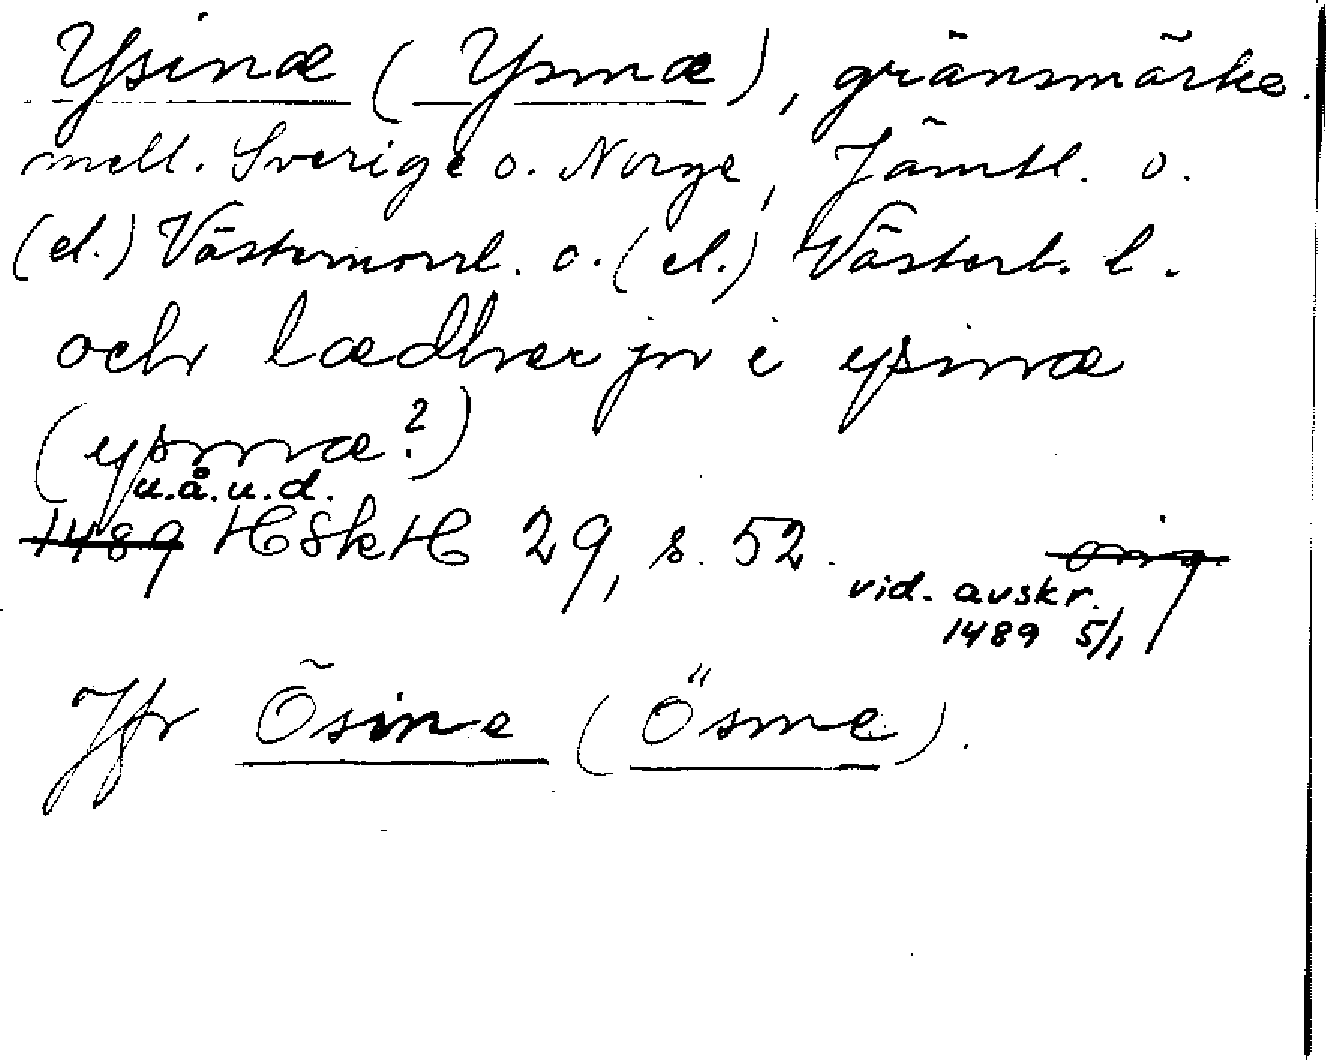 Ysinæ (Ysmæ), gränsmärke
mell. Sverige o. Norge, Jämtl. o.
(el.) Västernorrl. o. (el.) Västerb. l.
och lædher jn i ysinæ
(ysmæ?)
u.å.u.d.
1489 HSkH 29, s. 52. orig.
vid. avskr.
1489 5/1
Jfr Ösine (Ösme).